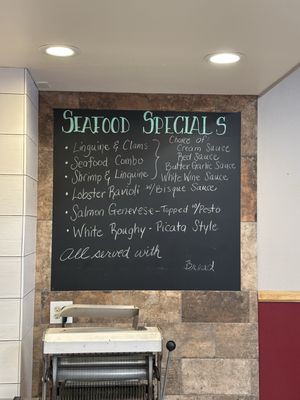 Seafood Specials
• Linguine & Clams
• Seafood Combo
• Shrimp & Linguine
Choice of
Cream Sauce
Red Sauce
Butter Garlic Sauce
White Wine Sauce
• Lobster Ravioli w/ Bisque Sauce
• Salmon Genevese - Topped w/ Pesto
• White Roughy - Picata Style
All served with
Bread